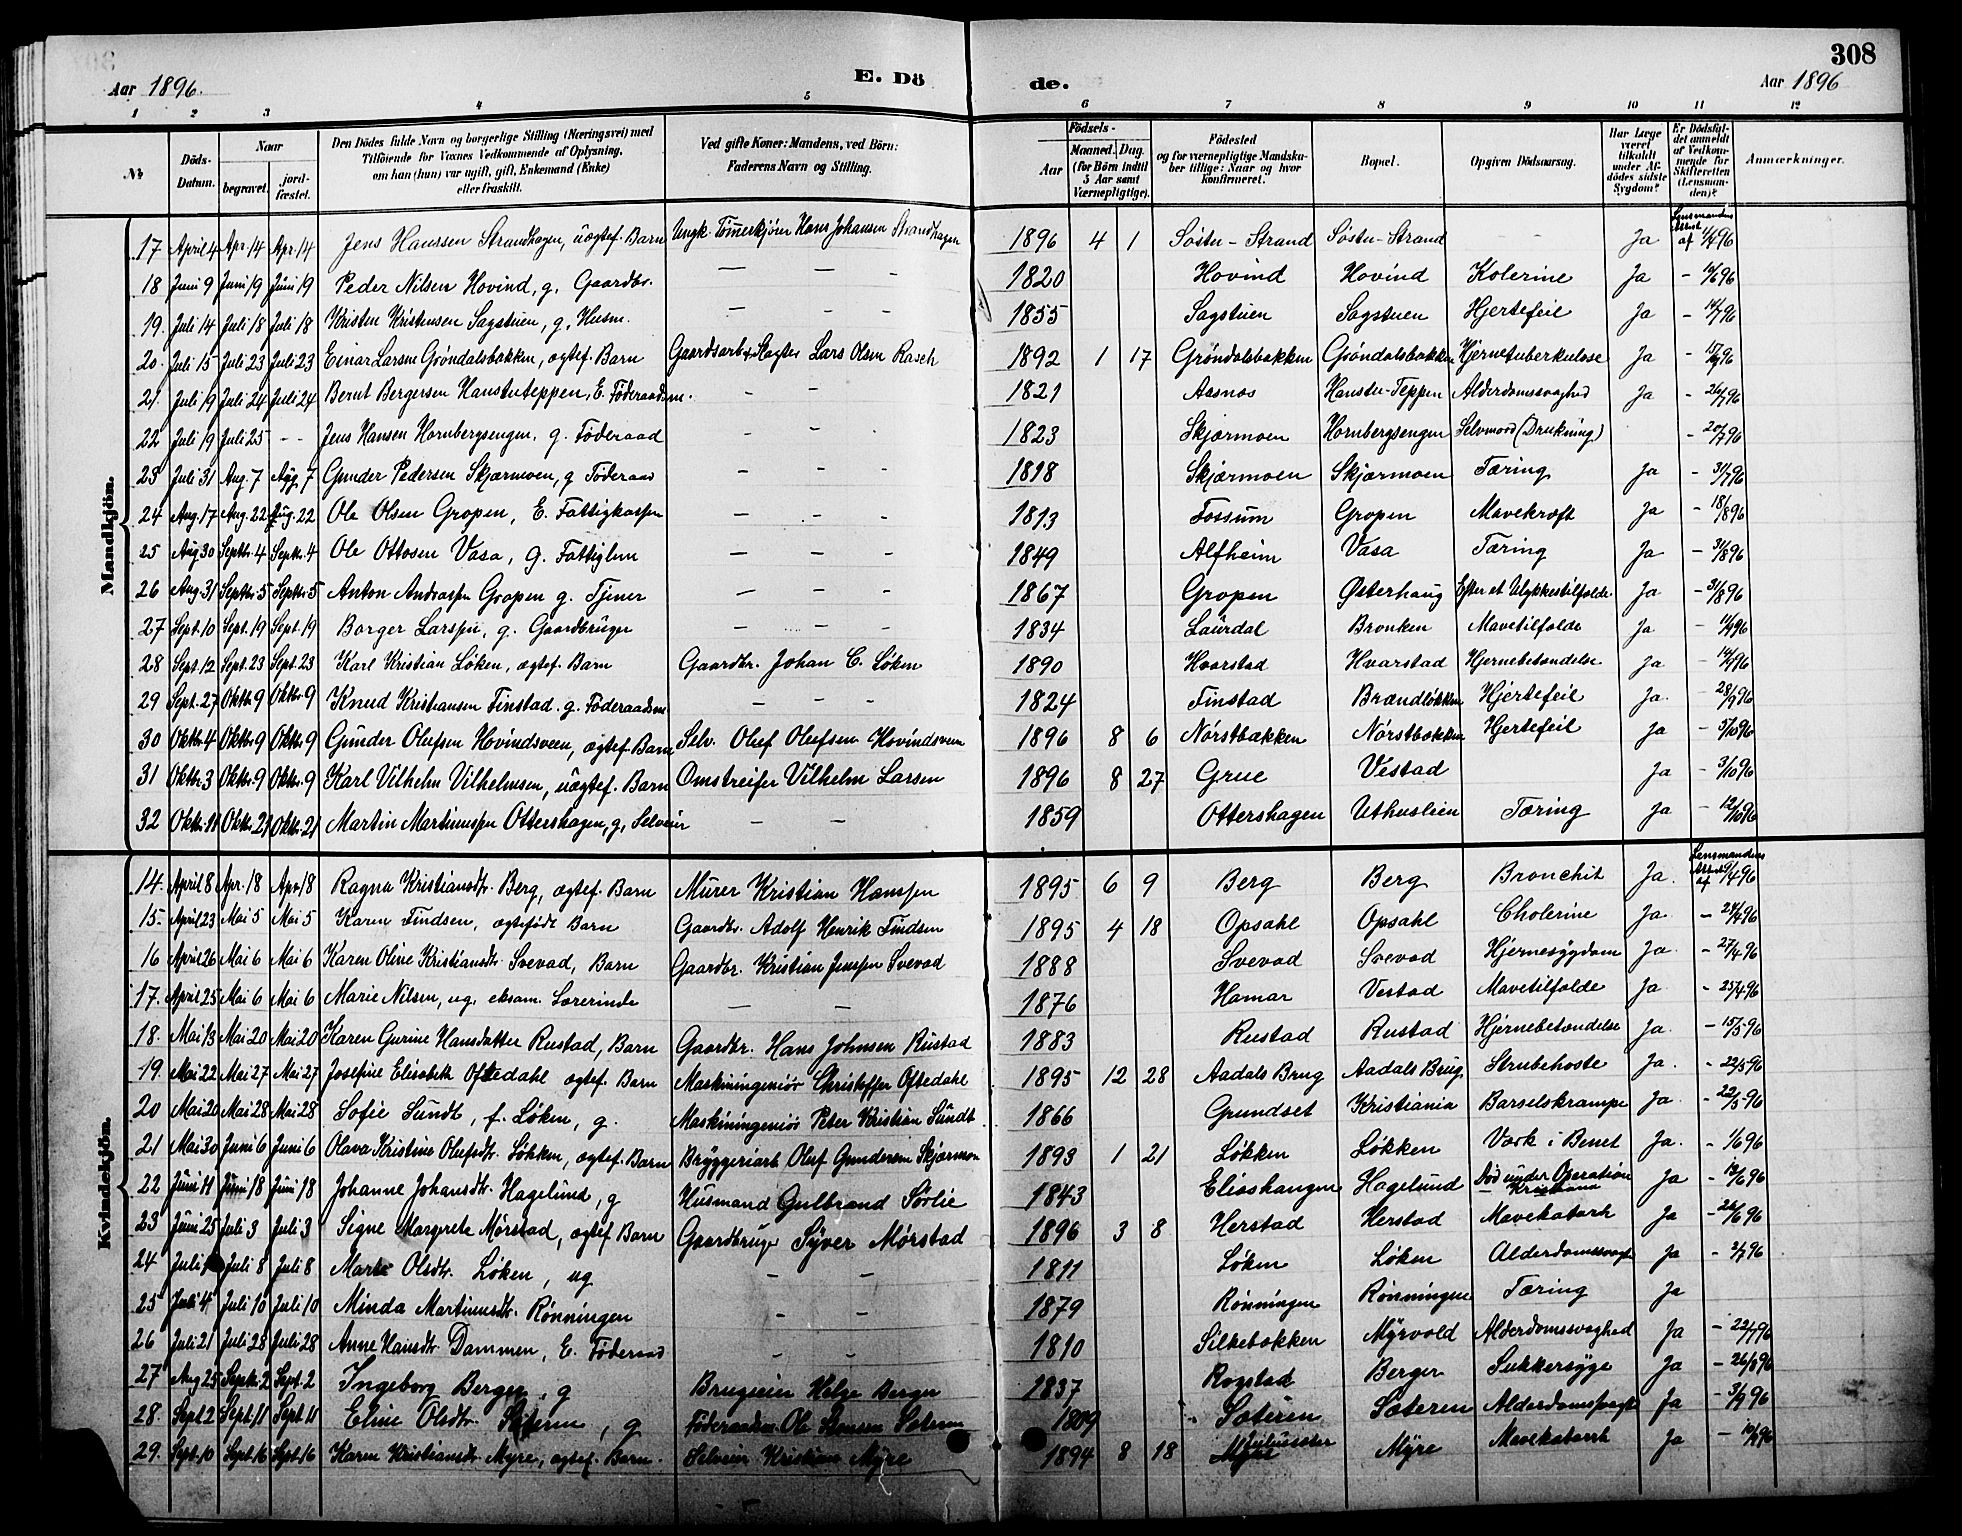 308
Aar 1896. E. Dö de. Aar 1896
1 2 3 4 5 6 7 8 9 10 11 12
№ Döds-Datum. Naar begravet. jord-fæstet. Den Dödes fulde Navn og borgerlige Stilling (Næringsvei) med Tilföiende for Voxnes Vedkommende af Oplysning, om han (hun) var ugift, gift, Enkemand (Enke) eller fraskilt. Ved gifte Koner: Mandens, ved Börn: Faderens Navn og Stilling. Födsels- Aar Maaned. Dag. (for Börn indtil 5 Aar samt Værnepligtige). Födested og for værnepligtige Mandskaber tillige: Naar og hvor konfirmeret. Bopæl. Opgiven Dödsaarsag. Har Læge været tilkaldt under Afdödes sidste Sygdom? Er Dödsfaldet anmeldt af Vedkommende for Skifteretten (Lensmanden)? Anmærkninger.
Mandkjön.
17 April 4 Apr. 14 Apr. 14 Jens Hanssen Strandhagen, uægtef. Barn Ungk. Tömmerkjörer Hans Johansen Strandhagen 1896 4 1 Söstu-Strand Söstu-Strand - - Ja Lensmandens Attest af 1/4 96
18 Juni 9 Juni 19 Juni 19 Peder Nilsen Hovind, g. Gaardbr. — — — 1820 Hovind Hovind Kolerine Ja - 12/6 96
19. Juli 14 Juli 18 Juli 18 Kristen Kristensen Sagstuen, g. Husm. — - - 1855 Sagstuen Sagstuen Hjertefeil Ja - 14/7 96
20. Juli 15 Juli 23 Juli 23 Einar Larsen Gröndalsbakken, ægtef. Barn Gaardsarb. & Slagter Lars Olsen Rasch 1892 1 17 Gröndalsbakken Gröndalsbakken Hjernetuberkulose Ja - 17/7 96
21 Juli 19 Juli 24 Juli 24 Bernt Bergersen Hanstuteppen, E. Föderaadsm. - - 1821 Aasnæs Hanstu-Teppen Alderdomssvaghed Ja - 26/7 96
22 Juli 19 Juli 25 - - Jens Hansen Hornbergsengen, g. Föderaad - - - 1823 Skjærmoen Hornbergsengen Selvmord (Drukning) - 20/7 96
23 Juli 31 Aug. 7 Aug. 7 Gunder Pedersen Skjærmoen, g Föderaad - - - 1818 Skjærmoen Skjærmoen Tæring Ja - 31/7 96
24 Aug. 17 Aug. 22 Aug. 22 Ole Olsen Gropen, E. Fattigkassen — - - 1813 Fossum Gropen Mavekræft Ja - 18/8 96
25 Aug 30 Septbr. 4 Septbr. 4 Ole Ottosen Vasa, g. Fattiglem — - - 1849 Alfheim Vasa Tæring Ja - 31/8 96
26 Aug. 31 Septbr. 5 Septbr. 5 Anton Andreassen Gropen g. Tjener — - - 1867 Gropen Østerhaug Efter et Ulykkestilfælde Ja - 31/8 96
27 Sept. 10 Sept. 19 Sept. 19 Borger Larssen, g. Gaardbruger — - - 1834 Laurdal Bronken Mavetilfælde Ja - 11/9 96
28 Sept. 12 Sept. 23 Sept. 23 Karl Kristian Löken, ægtef. Barn Gaardbr. Johan C. Löken 1890 Hvarstad Hvarstad Hjernebetændelse Ja - 14/9 96
29 Sept. 27 Oktbr. 9 Oktbr. 9 Knud Kristiansen Finstad. g. Föderaadsm. - - - 1824 Finstad Brændlökken Hjertefeil Ja. - 28/9 96
30 Oktbr. 4 Oktbr. 9 Oktbr. 9 Gunder Olufsen Hovindsveen, ægtef. Barn Selv. Oluf Olufsen Hovindsveen 1896 8 6 Nörstbækken Nörstbækken Hjertefeil Ja - 5/10 96
31 Oktbr. 3 Oktbr. 9 Oktbr. 9 Karl Vilhelm Vilhelmsen, uægtef. Barn Omstreifer Vilhelm Larsen 1896 8 27 Grue Vestad Ja - 3/10 96
32 Oktbr. 11 Oktbr. 21 Oktbr. 21 Martin Martinussen Ottershagen, g, Selveier — — 1859 Ottershagen Uthuslien Tæring Ja - 12/10 96
Kvindekjön.
14. April 8 Apr. 18 Apr. 18 Ragna Kristiansdtr. Berg, ægtef. Barn Murer Kristian Hanssen 1895 6 9 Berg Berg Bronchit Ja. Lensmandens Attest af 9/4 96
15. April 23 Mai 5 Mai 5 Karen Findsen, ægtefødt Barn Gaardbr. Adolf Henrik Findsen 1895 4 18 Opsahl Opsahl Cholerine Ja. - 24/4 96
16 April 26 Mai 6 Mai 6 Karen Oline Kristiansdtr. Svevad, Barn Gaardbr. Kristian Jenssen Svevad 1888 Svevad Svevad Hjernesygdom Ja. - 27/4 96
17. April 25 Mai 6 Mai 6 Marie Nilsen, ug. eksam. Lærerinde — — 1876 Hamar Vestad Mavetilfælde Ja. - 25/4 96
18. Mai 13 Mai 20 Mai 20 Karen Gurine Hansdatter Rustad, Barn Gaardbr. Hans Johnsen Rustad 1883 Rustad Rustad Hjernebetændelse Ja. - 15/5 96
19. Mai 22 Mai 27 Mai 27 Josefine Elisabeth Oftedahl ægtef. Barn Maskiningeniör Christoffer Oftedahl 1895 12 28 Aadals Brug Aadals Brug. Strubehoste Ja. - 22/5 96
20 Mai 20 Mai 28 Mai 28 Sofie Sundt, f. Löken, g. Maskiningeniör Peter Kristian Sundt 1866 Grundset Kristiania Barselskrampe Ja. - 22/5 96
21 Mai 30 Juni 6 Juni 6 Olava Kristine Olufsdtr. Lökken, ægtef. Barn Bryggeriarb. Oluf Gundersen Skjærmoen 1893 1 21 Lökken Lökken Værk i Benet Ja. - 1/6 96
22 Juni 11 Juni 18 Juni 18 Johanne Johansdtr. Hagelund, g Husmand Gulbrand Sörlie 1843 Eliashaugen Hagelund Död under Operation Kristiania Ja - 12/6 96
23 Juni 25 Juli 3 Juli 3 Signe Margrete Mörstad, ægtef. Barn Gaardbruger Syver Mörstad 1896 3 8 Herstad Herstad Mavekatarh Ja - 26/6 96
24 Juli Juli 8 Juli 8 Marte Olsdtr. Löken, ug — — 1811 Löken Löken Alderdomssvagh. Ja - 2/7 96
25 Juli 4 Juli 10 Juli 10 Minda Martinusdtr. Rönningen - - 1879 Rönningen Rönningen Tæring Ja
26 Juli 21 Juli 28 Juli 28 Anne Hansdtr. Dammen, E. Föderaad - - 1810 Silkebækken Myrvold Alderdomssvaghed Ja - 22/7 96
27 Aug 25 Septbr. 2 Sept. 2 Ingeborg Berger, g Brugseier Helge Berger 1837 Rogstad Berger Sukkersyge Ja - 26/8 96
28. Sept. 2 Sept. 11 Sept. 11 Eline Olsdtr. Sæteren, g Föderaadsm. Ole Sæteren 1809 Sæteren Sæteren Alderdomssvagh. Ja - 3/9 96
29. Sept. 10 Sept. 16 Sept. 16 Karen Kristiansdtr. Myre, ægtef. Barn. Selveier Kristian Myre 1894 8 18 Myre Mavekatarrh Ja - 10/9 96